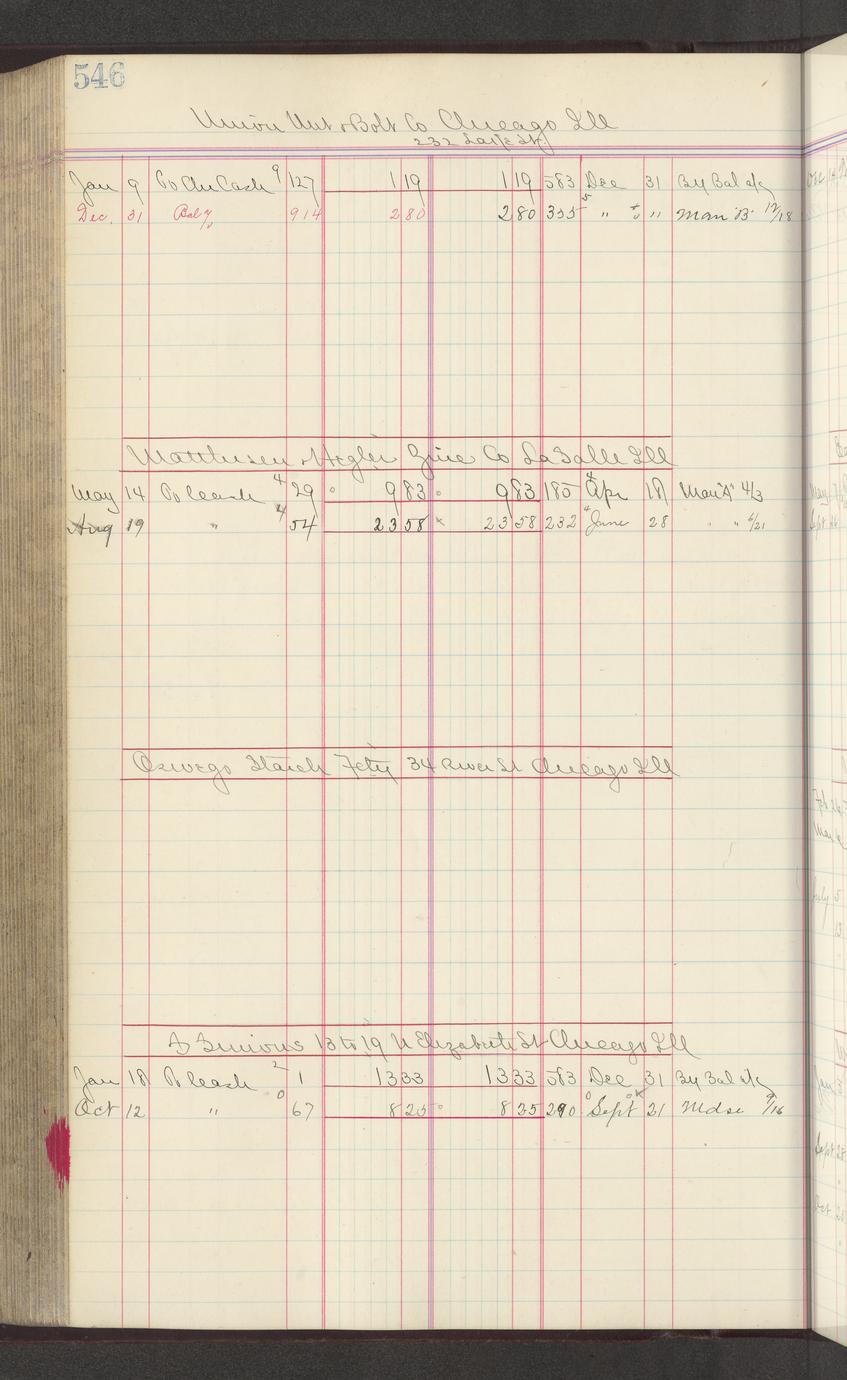 546
Union Nut & Bolt Co Chicago Ill
232 Lake St
Jan 9 To Chi Cash 9 127 1 19 1 19 583 Dec 31 By Bal a/c
Dec. 31 Bal 914 2 80 2 80 355 5 " " Man "B" 12/18
Matthiesen & Hegler Zinc Co LaSalle Ill
May 14 To Cash 4 29 9 83 9 83 185 4 Apr 18 Man "A" 4/3
Aug 19 " 4 54 23 58 23 58 232 4 June 28 " " 6/21
Oswego Starch Fcty 34 River St Chicago Ill
13 to 19 N Elizabeth St Chicago Ill
Jan 18 To Cash 2 1 13 33 13 33 583 Dec 31 By Bal a/c
Oct 12 " 0 67 8 25 8 25 290 0 Sept 21 Mdse 9/16